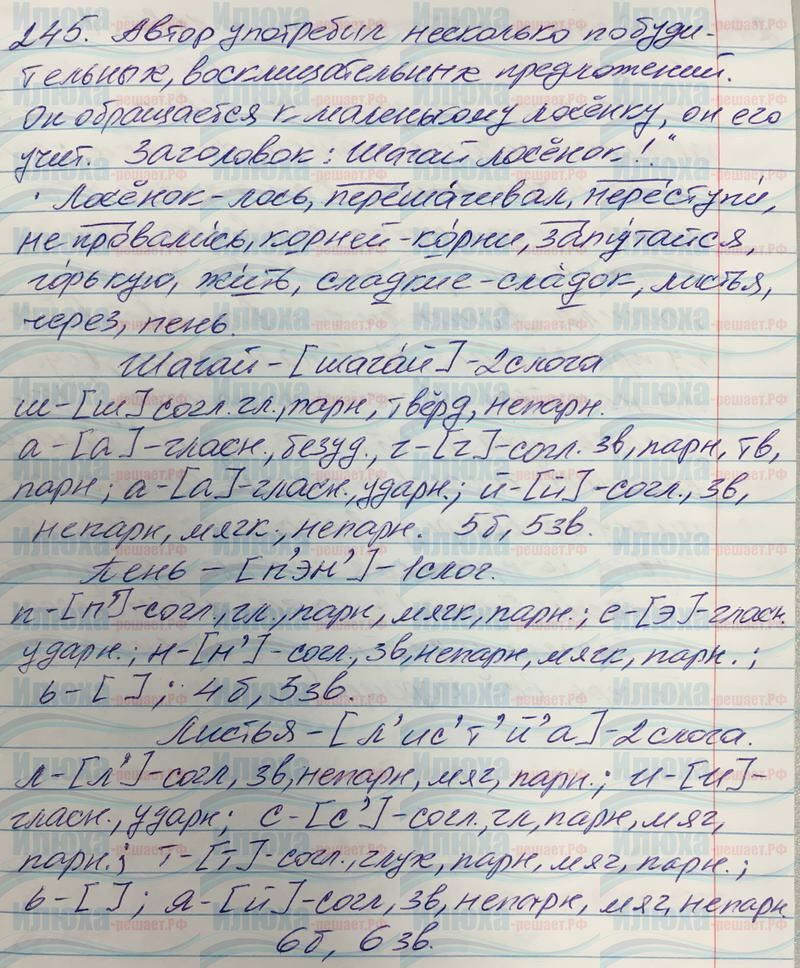 245. Автор употребил несколько побуди-
тельных, восклицательных предложений.
Он обращается к маленькому лосёнку, он его
учит. Заголовок: Шагай лосёнок!."
Лосёнок - лось, перешáчивал, перéступи́,
не провали́сь, корней - ко́рни, запу́тайся,
го́рькую, жить, сладкие - сла́док, листья,
через, пень.
Шагай - [шага́й] - 2 слога
ш - [ш] согл. гл., парн, твёрд, непарн.
а - [а] - гласн., безуд., г - [г] - согл. зв, парн, тв,
парн; а - [а] - гласн., ударн.; й - [й] - согл., зв,
непарн, мягк., непарн. 5б, 5зв.
Пень - [п'эн'] - 1 слог.
п - [п'] - согл, гл, парн, мягк, парн.; е - [э] - гласн.
ударн.; н - [н'] - согл, зв, непарн, мягк, парн.;
ь - [ ]; 4б, 3зв.
Листья - [л'ис'т'й'а] - 2 слога.
л - [л'] - согл, зв, непарн, мяг, парн.; и - [и] -
гласн., ударн; с - [с'] - согл, гл, парн, мяг,
парн.; т - [т] - согл., глух, парн, мяг, парн.;
ь - [ ]; я - [й] - согл, зв, непарн, мяг, непарн
6б, 6 зв.